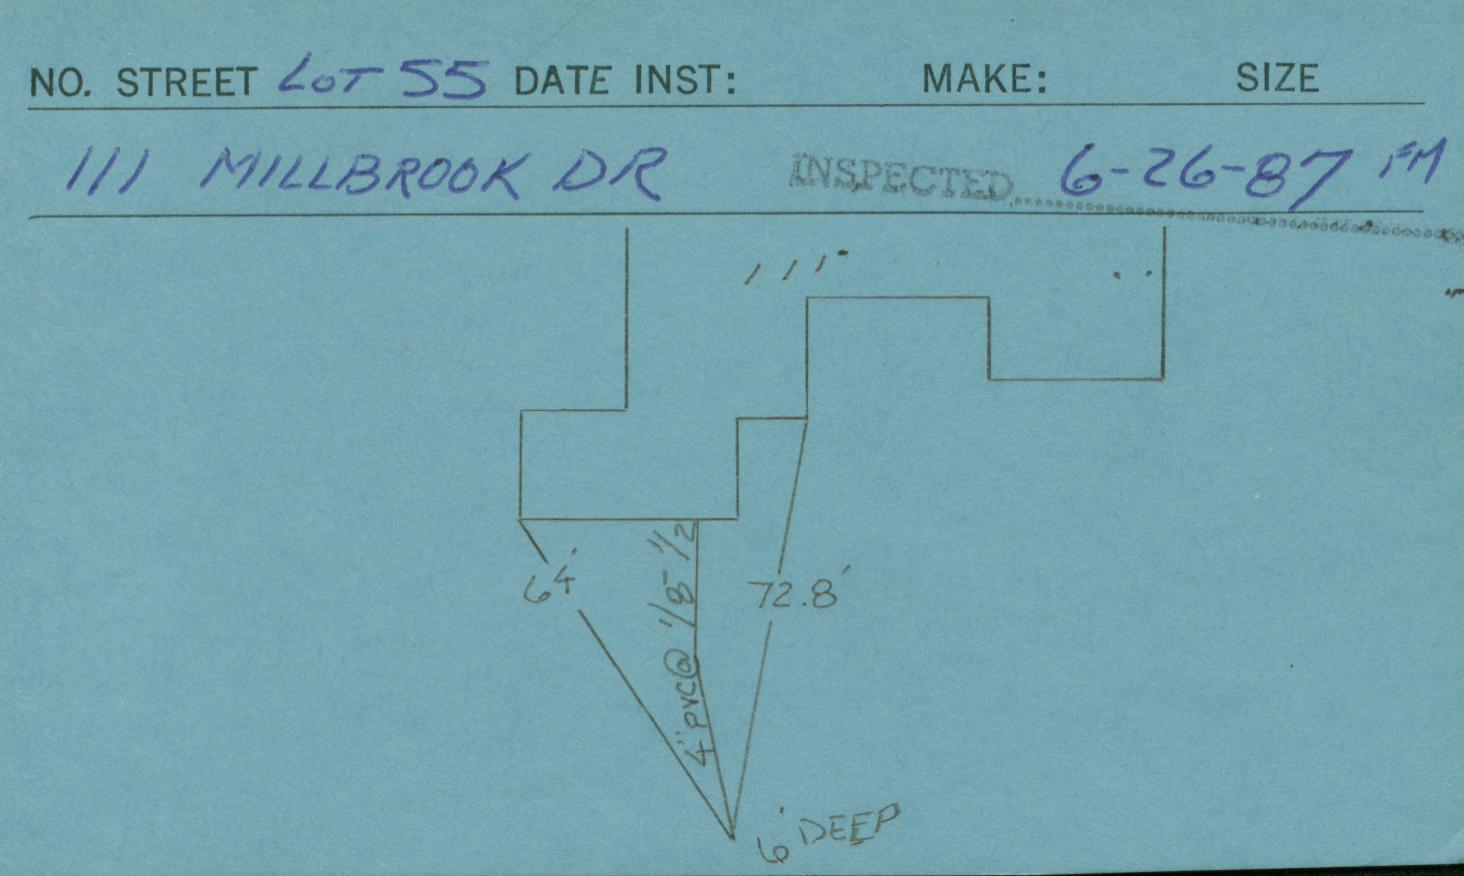 NO. STREET LOT 55 DATE INST: MAKE: SIZE
111 MILLBROOK DR INSPECTED 6-26-87
64'
4" PVC @ 1/8-1/2
72.8'
6' DEEP